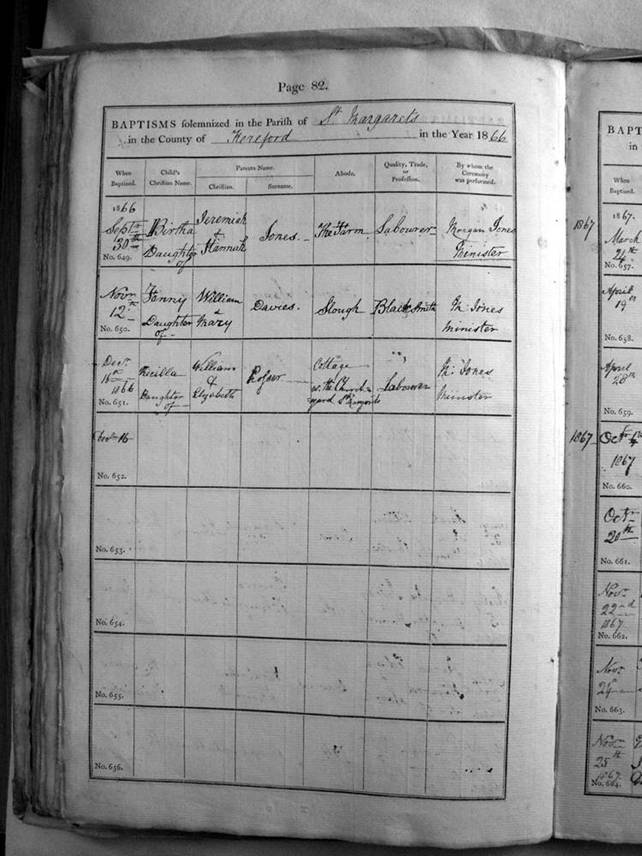 Page 82.
BAPTISMS solemnized in the Parish of St Margarets
in the County of Hereford in the Year 1866
When Baptized. Child's Christian Name. Parents Name. Abode. Quality, Trade, or Profession. By whom the Ceremony was performed.
Christian. Surname.
1866
Septr 30th Daughter of Jeremiah & Hannah Jones. The Farm. Labourer Morgan Jones Minister
No. 649.
Novr 12th Fanny Daughter of William & Mary Davies. Slough Black Smith M. Jones Minister
No. 650.
Decr 16th 1866 Daughter of William & Elizabeth Cottage Labourer M. Jones Minister
No. 651.
No. 652.
No. 653.
No. 654.
No. 655.
No. 656.
BAPT
in
When Baptized.
1867
1867.
March 24th
No. 657.
April 19
No. 658.
April 28th
No. 659.
1867
Octr 6
1867
No. 660.
Octr 20th
No. 661.
Novr 22nd 1867
No. 662.
Novr 24
No. 663.
Novr 25th 1867
No. 664.